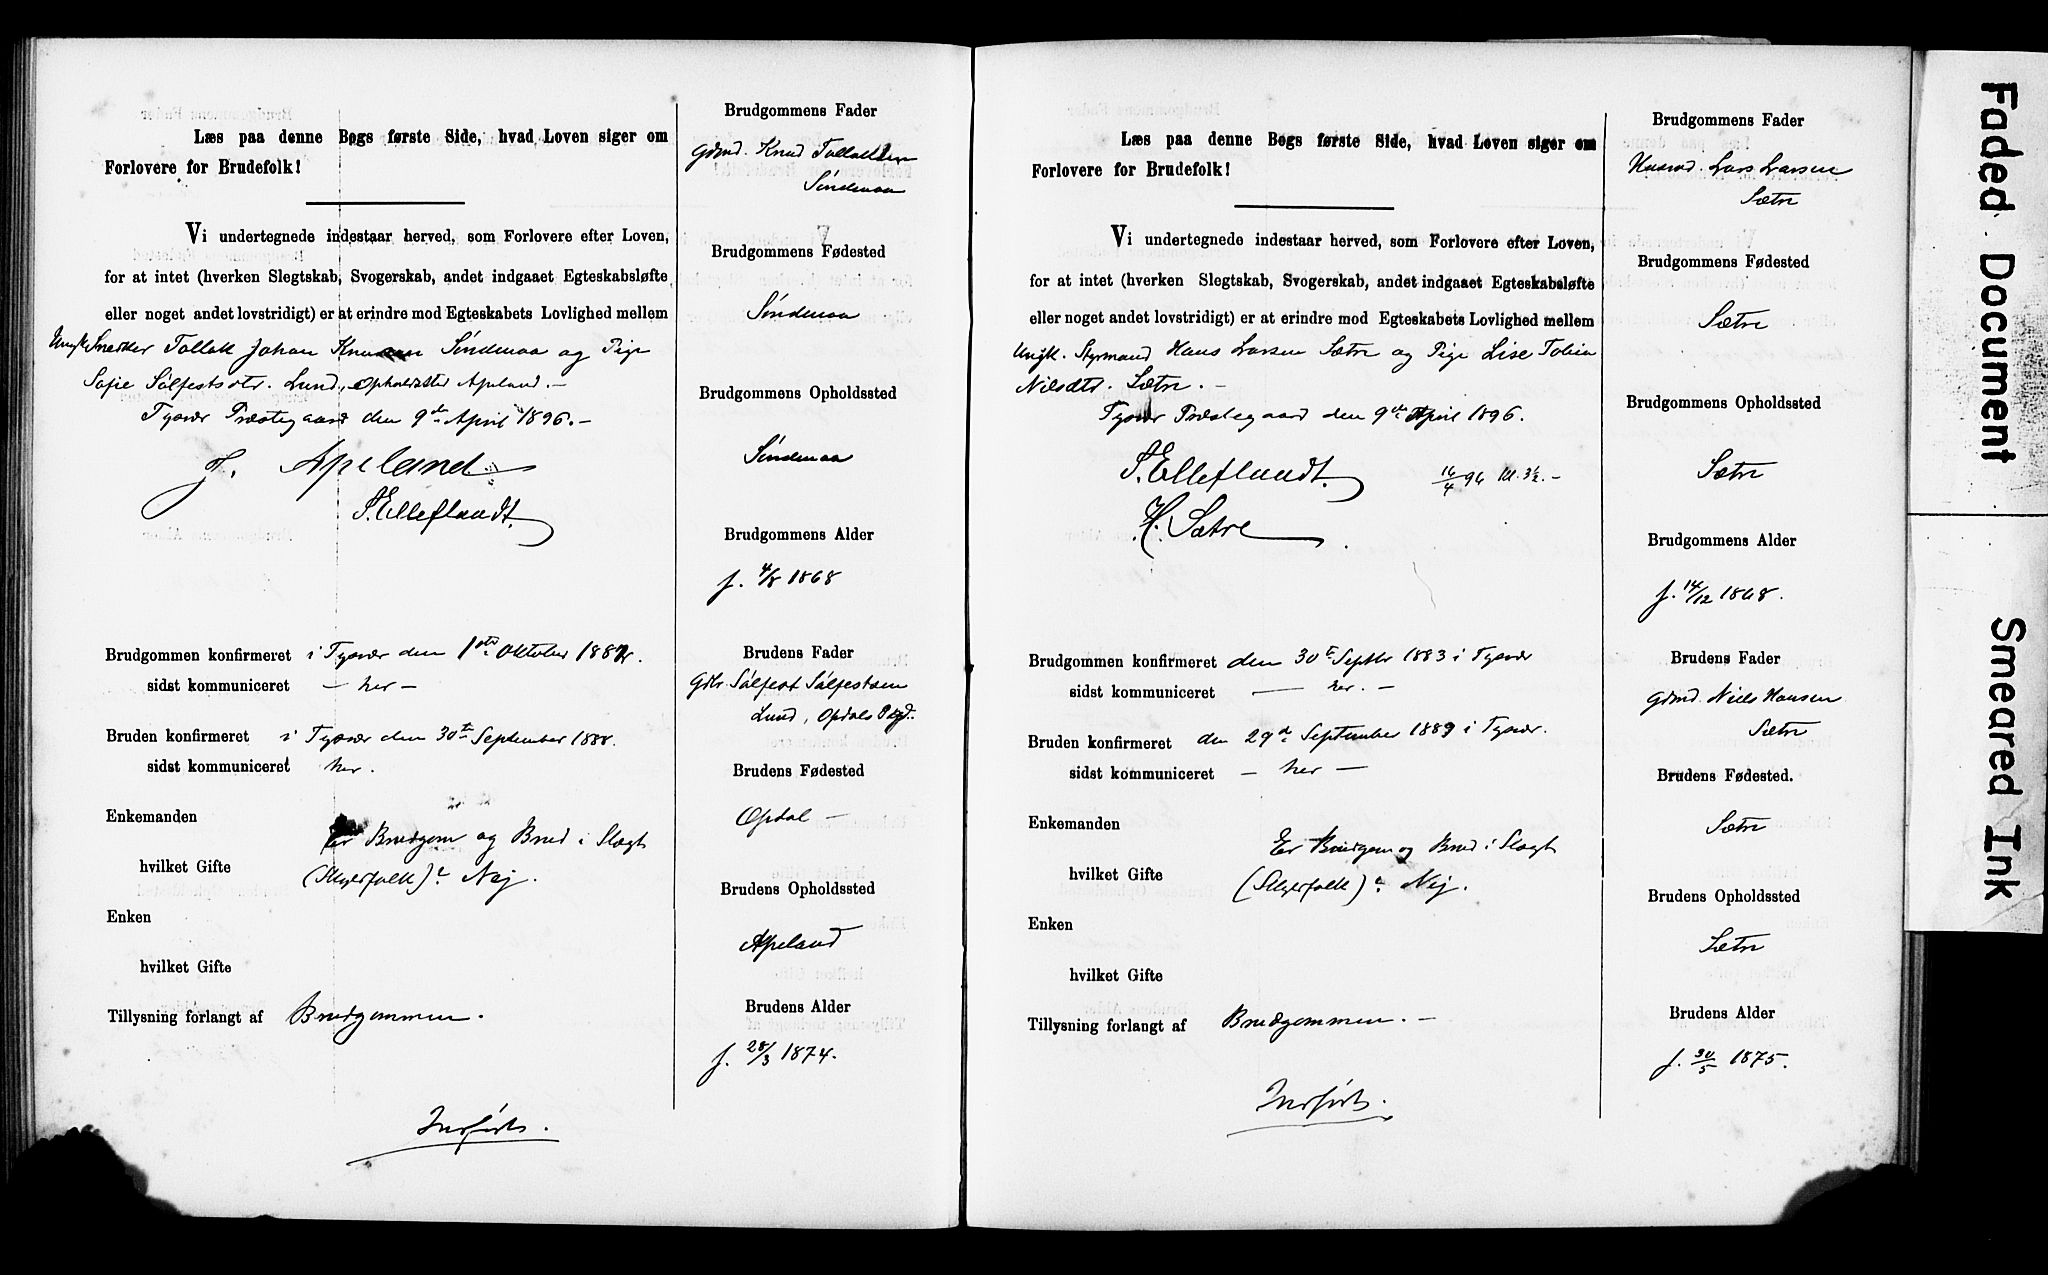 Læs paa denne Bogs første Side, hvad Loven siger om
Forlovere for Brudefolk!
Vi undertegnede indestaar herved, som Forlovere efter Loven,
for at intet (hverken Slegtskab, Svogerskab, andet indgaaet Egteskabsløfte
eller noget andet lovstridigt) er at erindre mod Egteskabets Lovlighed mellem
Ungk. Snedker Tollak Johan Knudsen Søndenaa og Pige
Sofie Sølfestsdtr. Lund, Opholdssted Apeland. –
Tysvær Præstegaard den 9de April 1896. –
J. Apeland
S. Elleflaadt.
Brudgommen konfirmeret i Tysvær den 1ste Oktober 188
sidst kommuniceret – her –
Bruden konfirmeret i Tysvær den 30te September 1888.
sidst kommuniceret her.
Enkemanden
Er Brudgom og Brud i Slægt
hvilket Gifte (Skyldfolk)? Nej.
Enken
hvilket Gifte
Tillysning forlangt af Brudgommen.
Indført.
Brudgommens Fader
Gdmd. Knud Tollaksen
Søndenaa
Brudgommens Fødested
Søndenaa
Brudgommens Opholdssted
Søndenaa
Brudgommens Alder
f. 4/8 1868
Brudens Fader
Gdbr. Sølfest Sølfestsen
Lund, Opdals Pgd.
Brudens Fødested
Opdal –
Brudens Opholdssted
Apeland
Brudens Alder
f. 28/3 1874.
Læs paa denne Bogs første Side, hvad Loven siger om
Forlovere for Brudefolk!
Vi undertegnede indestaar herved, som Forlovere efter Loven,
for at intet (hverken Slegtskab, Svogerskab, andet indgaaet Egteskabsløfte
eller noget andet lovstridigt) er at erindre mod Egteskabets Lovlighed mellem
Ungk. Styrmand Hans Larsen Sætre og Pige Lise Tobia
Nilsdtr. Sætre. –
Tysvær Præstegaard den 9de April 1896.
S. Elleflaadt. 16/4 96 Kl. 3½. –
H. Sætre
Brudgommen konfirmeret den 30te Septbr 1883 i Tysvær
sidst kommuniceret — her. –
Bruden konfirmeret den 29de September 1889 i Tysvær.
sidst kommuniceret – her –
Enkemanden
Er Brudgom og Brud i Slægt
hvilket Gifte (Skyldfolk)? Nej.
Enken
hvilket Gifte
Tillysning forlangt af Brudgommen. –
Indført.
Brudgommens Fader
Husmd. Lars Larsen
Sætre
Brudgommens Fødested
Sætre
Brudgommens Opholdssted
Sætre
Brudgommens Alder
f. 14/12 1868.
Brudens Fader
Gdmd. Niels Hansen
Sætre
Brudens Fødested.
Sætre
Brudens Opholdssted
Sætre
Brudens Alder
f. 30/5 1875.
Faded Document
Smeared Ink